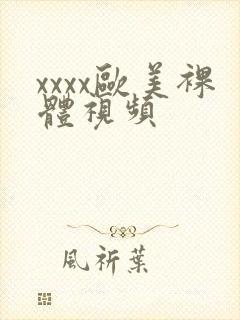 xxxx歐美裸
體視頻
風祈葉